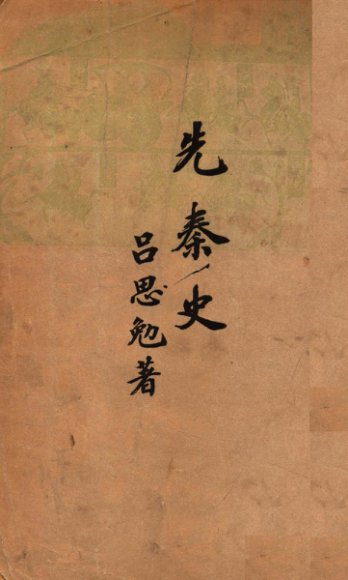 先秦史
吕思勉著